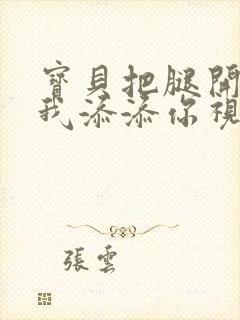 寶貝把腿開
我添添你視
張雲